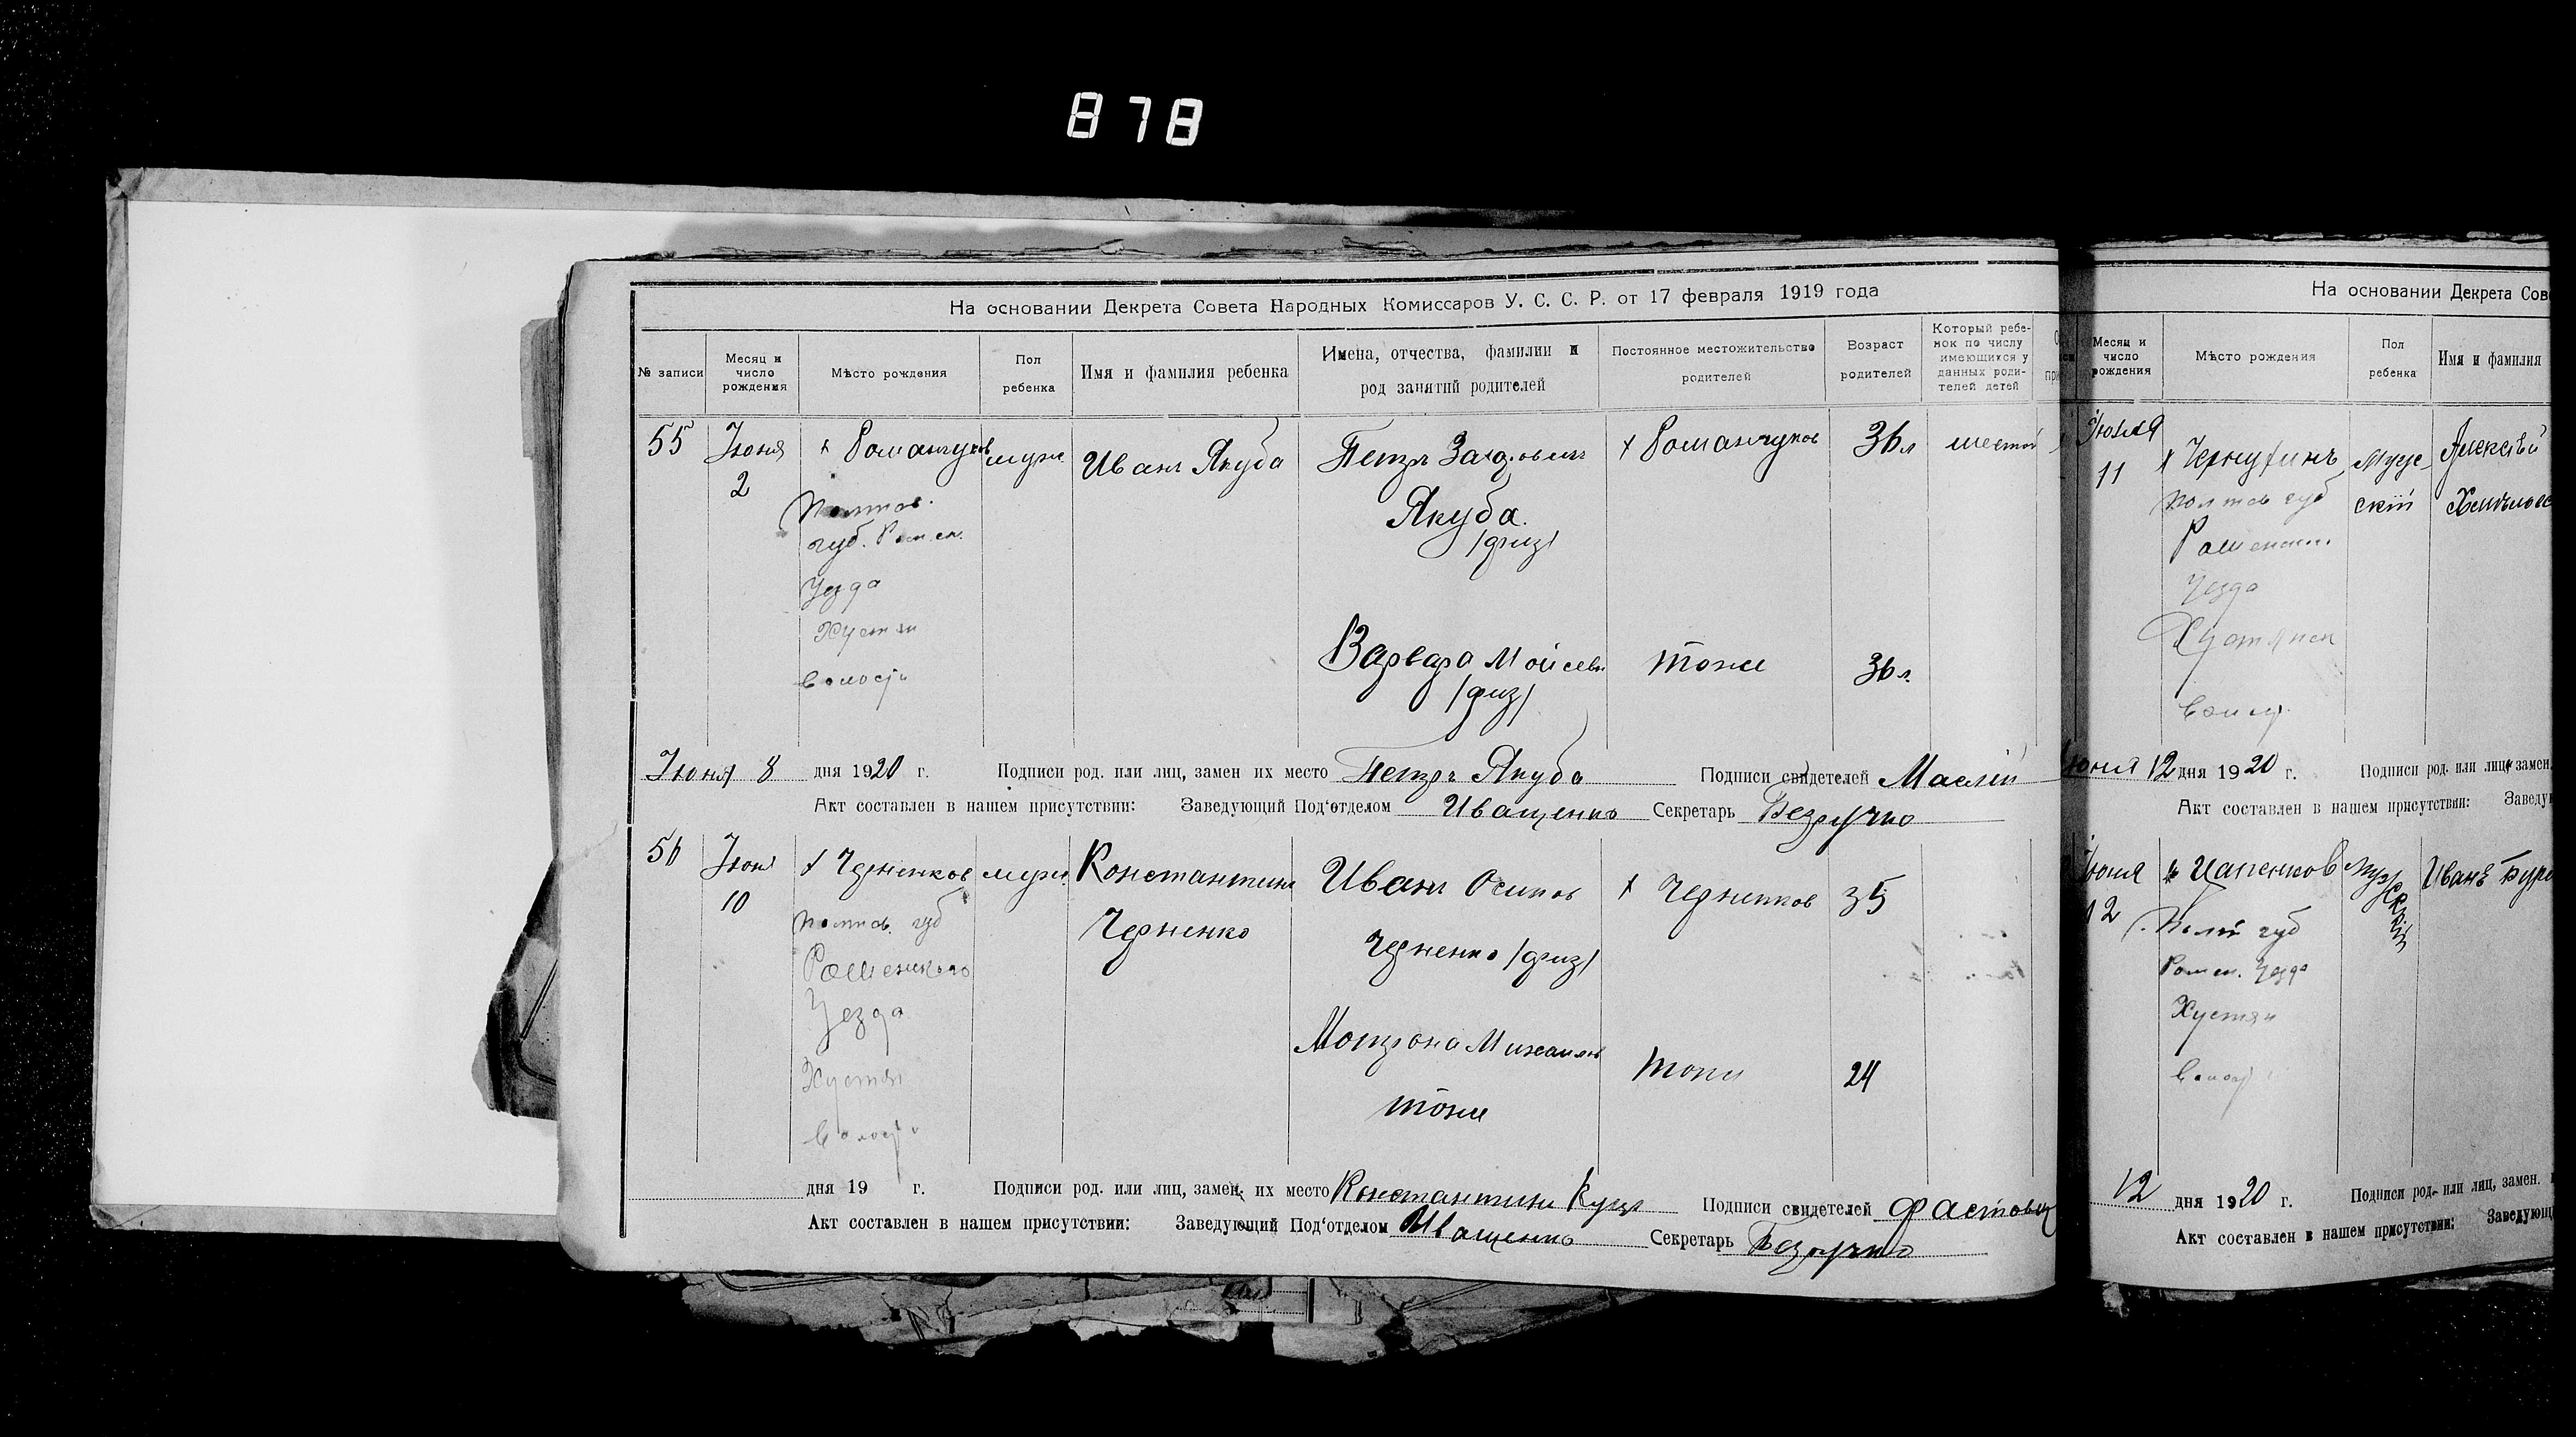 878
На основании Декрета Совета Народных Комиссаров У. С. С. Р. от 17 февраля 1919 года
№ записи
Месяц и число рождения
Мѣсто рождения
Пол ребенка
Имя и фамилия ребенка
Имена, отчества, фамилии и род занятий родителей
Постоянное местожительство родителей
Возраст родителей
Который ребенок по числу имеющихся у данных родителей детей
55
Июня
2
х Романчуков
Полтов.
губ. Ромен.
Уезда
Хустян
Волости
муж
Иван Якуба
Петр
Якуба
/физ/
х Романчуков
36 л
шестой
Варвара Мойсеев
/физ/
тоже
36 л.
Июня 8 дня 1920 г. Подписи род. или лиц, замен их место Петр Якуба Подписи свидетелей Маслій
Акт составлен в нашем присутствии: Заведующий Под'отделом Иващенко Секретарь Безручко
56
Июня
10
х Черненков
Полтов. губ
Роменского
Уезда
Хустян
Волости
муж.
Константин
Черненко
Иван Осипов
Черненко /физ/
х Черненков
35
Мотрона Михайлов
тоже
тоже
24
дня 19 г. Подписи род. или лиц, замен. их место Константин Подписи свидетелей
Акт составлен в нашем присутствии: Заведующий Под'отделом Иващенко Секретарь Безручко
На основании Декрета Сов
Месяц и число рождения
Мѣсто рождения
Пол ребенка
Имя и фамилия
Июня
11
Полтов губ
Роменск
Уезда
Хустянск
Волос
Мужский
Алексѣй
Июня 12 дня 1920 г. Подписи род. или лиц, замен.
Акт составлен в нашем присутствии: Заведу
Июня
12
х Цапенков
Полт губ
Ромен. Уезда
Хустян
Волост
Мужский
Иванъ
12 дня 1920 г. Подписи род. или лиц, замен.
Акт составлен в нашем присутствии: Заведующ